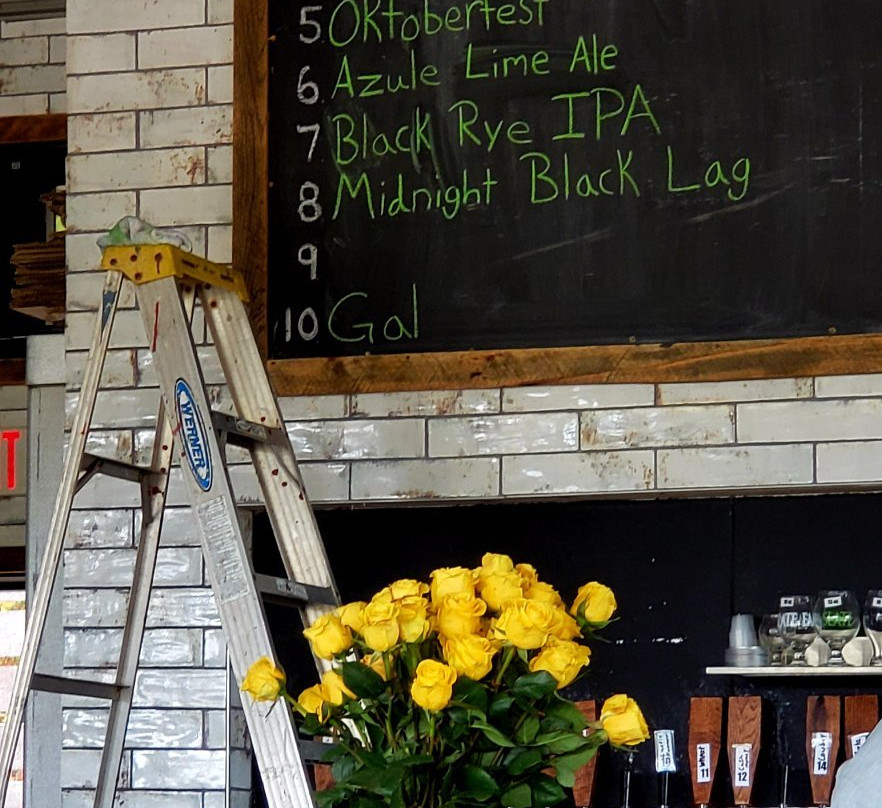 5 Oktoberfest
6 Azule Lime Ale
7 Black Rye IPA
8 Midnight Black Lag
9
10 Gal
WERNER
T
11
12
14